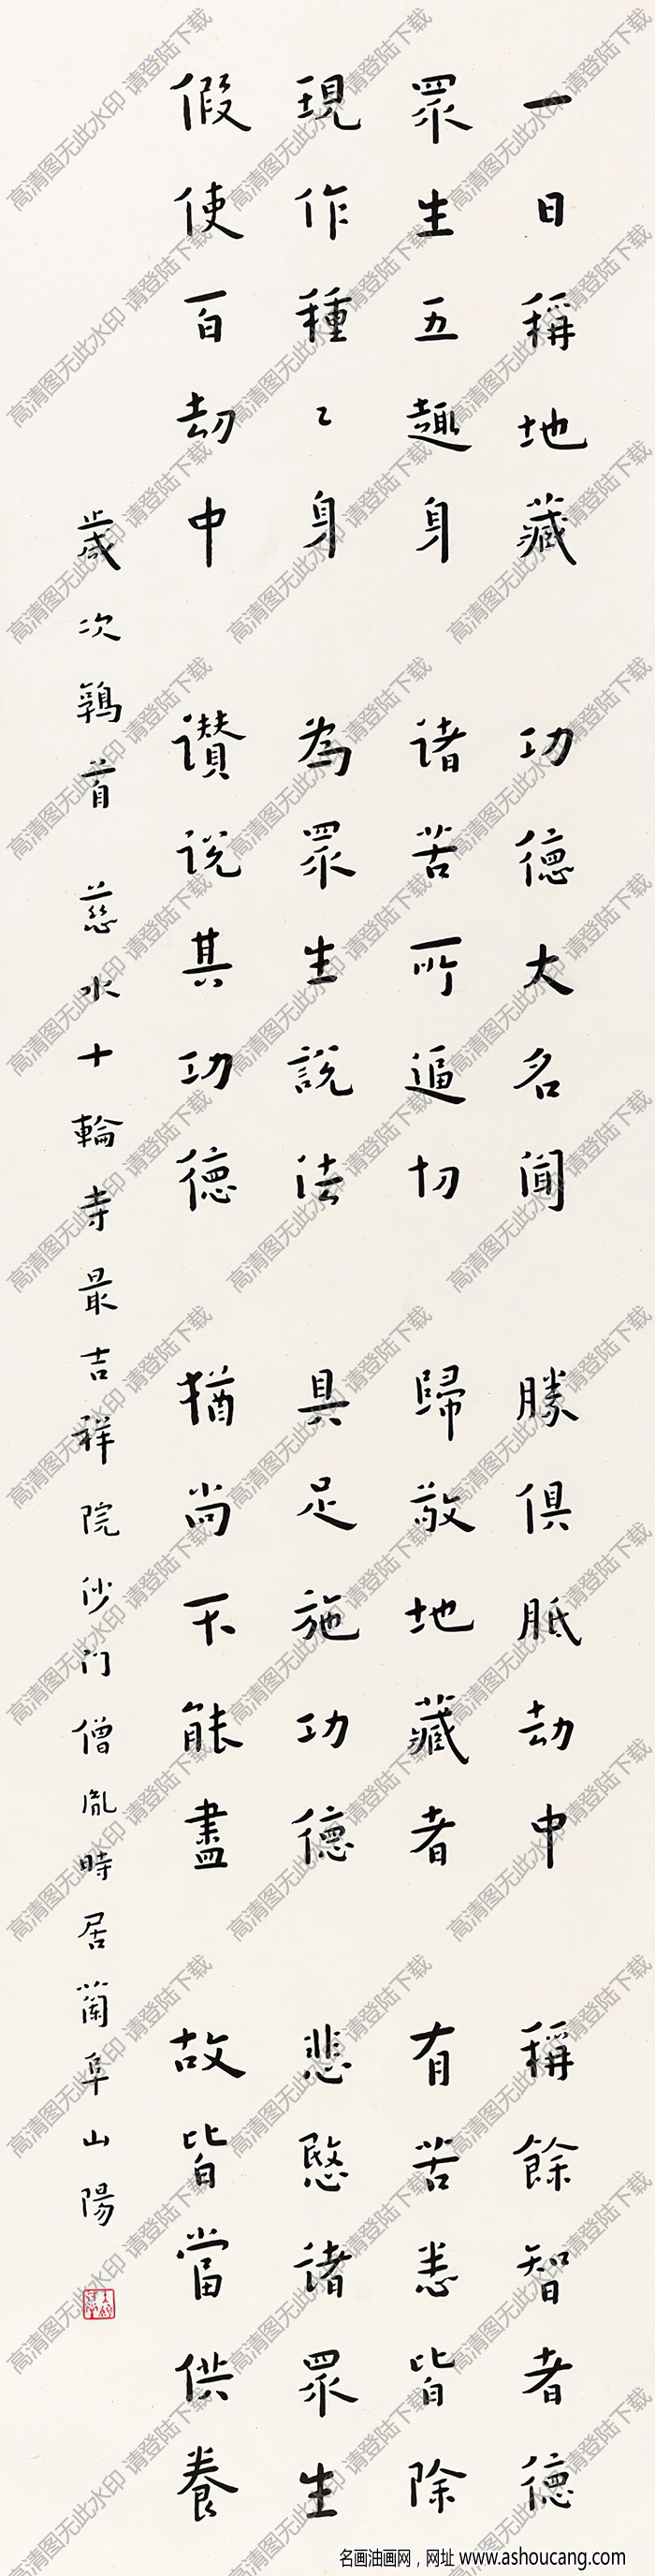 一日稱地藏 功德大名聞 勝俱胝劫中 稱餘智者德
眾生五趣身 諸苦所逼切 歸敬地藏者 有苦悉皆除
現作種々身 為眾生說法 具足施功德 悲愍诸眾生
假使百劫中 讚说其功德 猶尚不能盡 故皆當供養
歲次鶉首 慈水十輪寺最吉祥院沙门僧胤時居蘭阜山陽
名画油画网，网址 www.ashoucang.com
高清图无此水印 请登陆下载